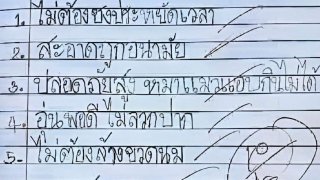 1. ไม่ต้องชงประหยัดเวลา
2. สะอาดถูกอนามัย
3. ปลอดภัยสูง หมาแมวแอบกินไม่ได้
4. อุ่นพอดี ไม่ลวกปาก
5- ไม่ต้องล้างขวดนม